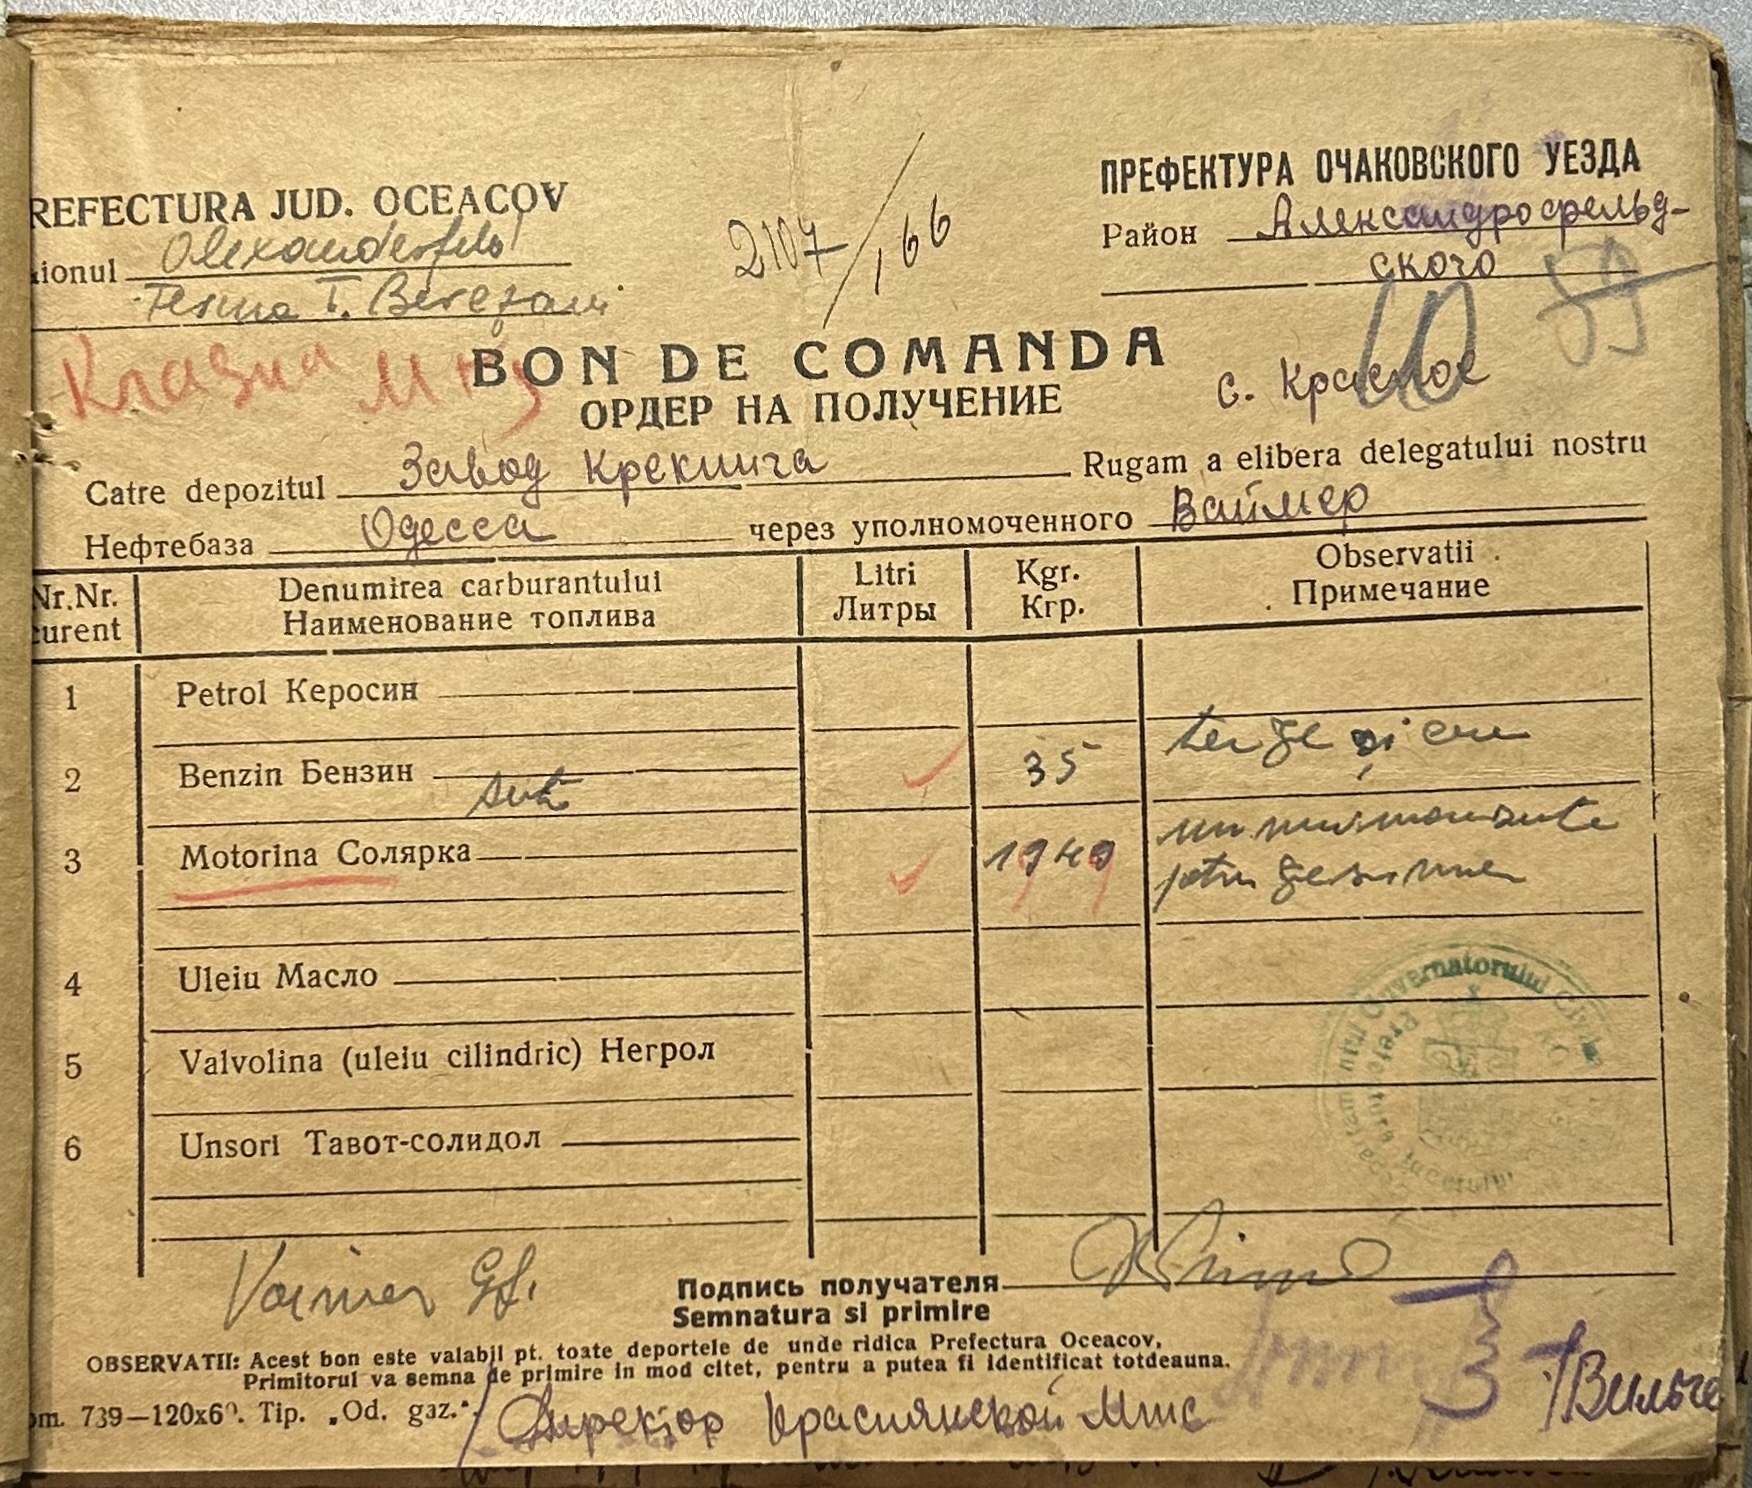 REFECTURA JUD. OCEACOV
ПРЕФЕКТУРА ОЧАКОВСКОГО УЕЗДА
ionul Alexanderfeld
Район Александрофельд-
ского
T. Berezani
2107/166
59
10
BON DE COMANDA
ОРДЕР НА ПОЛУЧЕНИЕ
с. Красное
Catre depozitul Завод Крекинга Rugam a elibera delegatului nostru
Нефтебаза Одесса через уполномоченного Ваймер
Nr.Nr. curent Denumirea carburantului Наименование топлива Litri Литры Kgr. Кгр. Observatii Примечание
1 Petrol Керосин
2 Benzin Бензин 35
3 Motorina Солярка
4 Uleiu Масло
5 Valvolina (uleiu cilindric) Негрол
6 Unsori Тавот-солидол
Guvernatorului Civil
Prefectura Judetului
Vaimer
Подпись получателя
Semnatura si primire
OBSERVATII: Acest bon este valabil pt. toate deportele de unde ridica Prefectura Oceacov,
Primitorul va semna de primire in mod citet, pentru a putea fi identificat totdeauna.
om. 739—120x60. Tip. „Od. gaz.“.
Директор Краснянской Мтс